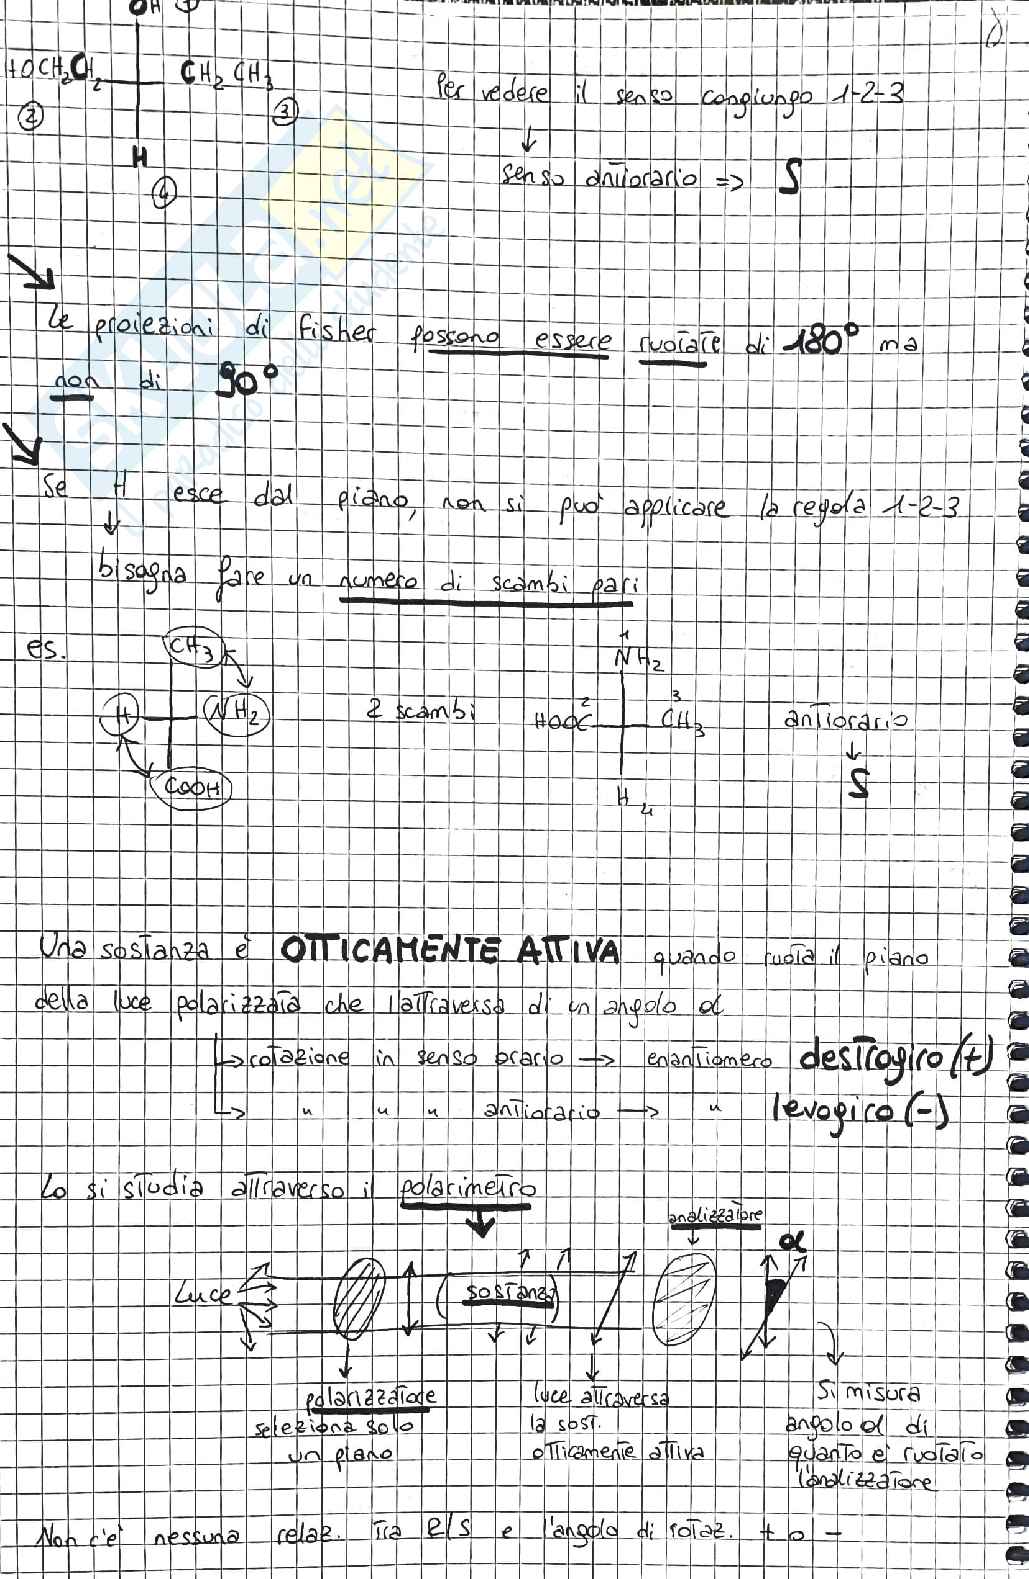 OH 1
HOCH2CH2 CH2CH3
2 3
H
4
Per vedere il senso congiungo 1-2-3
senso antiorario => S
Le proiezioni di Fisher possono essere ruotate di 180° ma
non di 90°
Se H esce dal piano, non si può applicare la regola 1-2-3
bisogna fare un numero di scambi pari
es. CH3
H NH2
COOH
2 scambi
1
NH2
2 3
HOOC CH3
H 4
antiorario
S
Una sostanza è OTTICAMENTE ATTIVA quando ruota il piano
della luce polarizzata che l'attraversa di un angolo α
rotazione in senso orario → enantiomero destrogiro (+)
" " " antiorario → " levogiro (-)
Lo si studia attraverso il polarimetro
analizzatore
α
Luce sostanza
polarizzatore
seleziona solo
un piano
luce attraversa
la sost.
otticamente attiva
Si misura
angolo α di
quanto è ruotato
l'analizzatore
Non c'è nessuna relaz. tra R/S e l'angolo di rotaz. + o -